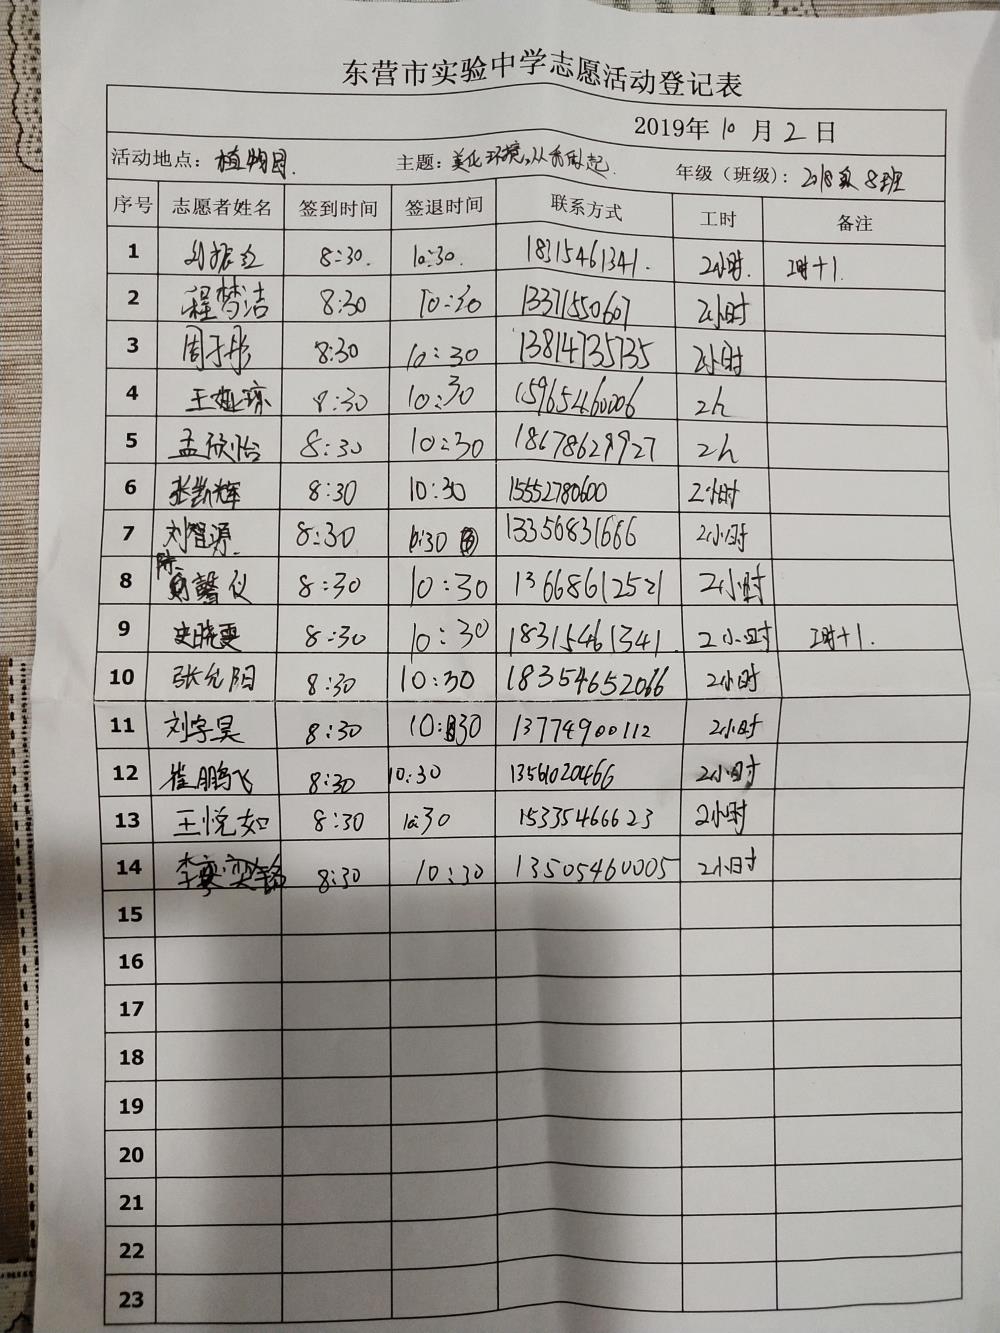 东营市实验中学志愿活动登记表
2019年 10 月 2 日
活动地点： 植物园. 主题：美化环境,从我做起. 年级（班级）：2018级 8班
序号 志愿者姓名 签到时间 签退时间 联系方式 工时 备注
1 8:30. 10:30. 18315461341. 2小时. 工时+1.
2 程梦洁 8:30 10:30 13371550607 2小时
3 周于彤 8:30 10:30 13814735735 2小时
4 8:30 10:30 15965460006 2h
5 孟欣怡 8:30 10:30 18678629927 2h
6 张凯辉 8:30 10:30 15552780600 2小时
7 刘智源. 8:30 10:30 13356831666 2小时
8 陈 馨仪 8:30 10:30 13668612521 2小时
9 史晓雯 8:30 10:30 18315461341. 2小时 工时+1.
10 张允阳 8:30 10:30 18354652066 2小时
11 刘宇昊 8:30 10:30 13774900112 2小时
12 崔鹏飞 8:30 10:30 13561020466 2小时
13 王悦如 8:30 10:30 15335466623 2小时
14 李 8:30 10:30 13505460005 2小时
15
16
17
18
19
20
21
22
23